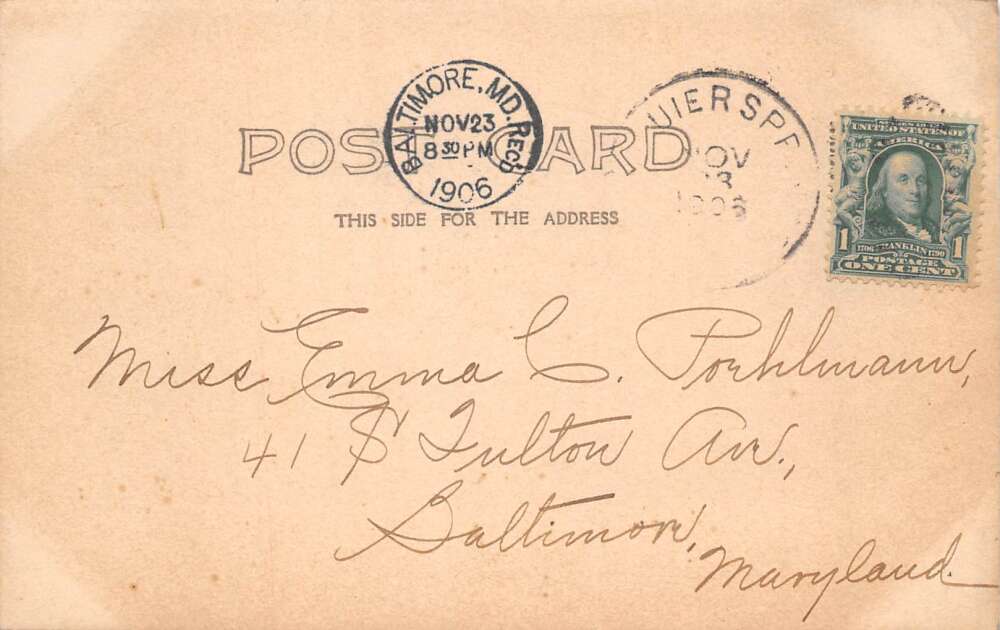 POST CARD
THIS SIDE FOR THE ADDRESS
BALTIMORE, MD. REC'D
NOV 23
8 30 PM
1906
UIER SPR
NOV
1906
UNITED STATES OF
AMERICA
1 1
1706 FRANKLIN 1790
POSTAGE
ONE CENT
Miss Emma C. Poehlmann,
41 S Fulton Ave.,
Baltimore,
Maryland.